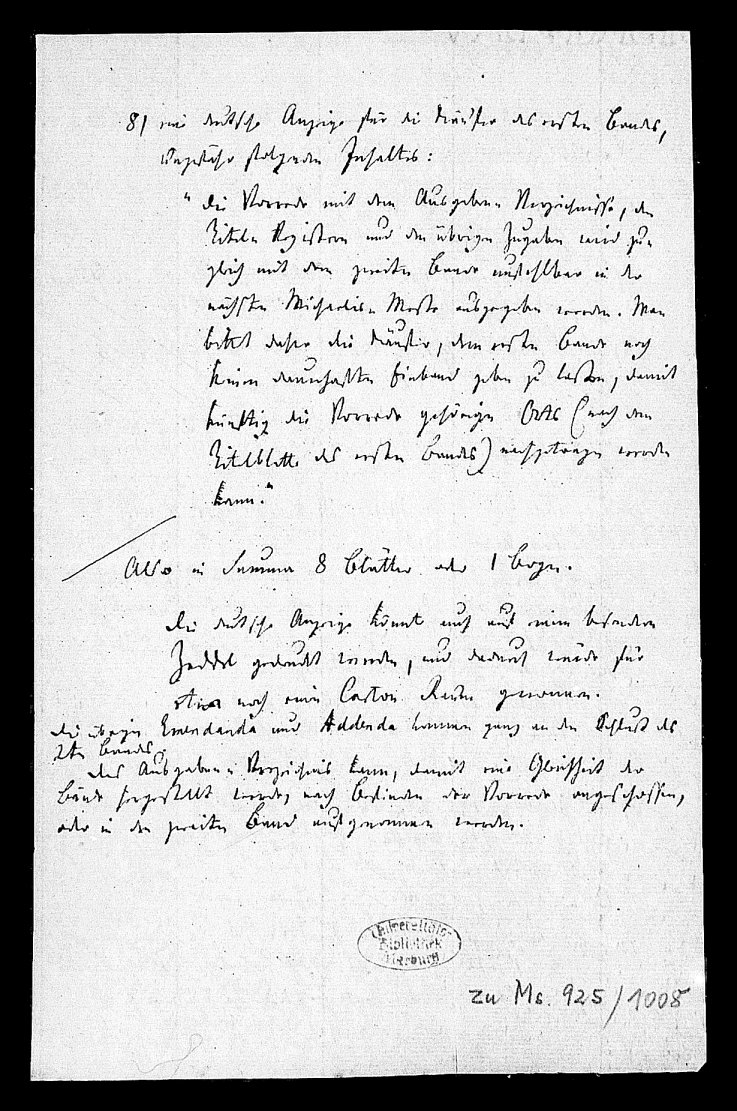 8) eine deutsche Anzeige für die Käufer des ersten Bandes,
ungefähr folgenden Inhaltes:
"Die Vorrede mit dem Ausgaben-Verzeichnisse, den
Titeln Registern und den übrigen Zugaben wird zu-
gleich mit dem zweiten Bande unfehlbar in der
nächsten Michaelis-Messe ausgegeben werden. Man
bittet daher die Käufer, dem ersten Bande noch
keinen dauerhaften Einband geben zu lassen, damit
künftig die Vorrede gehörigen Orts (nach dem
Titelblatte des ersten Bandes) nachgetragen werden
kann."
Also in Summa 8 Blätter oder 1 Bogen.
Die deutsche Anzeige könnte auch auf einen besondern
Zeddel gedruckt werden, und dadurch würde für
etwa noch einen Carton Raum gewonnen.
Die übrigen Emendanda und Addenda kommen ganz an den Schluß des
2ten Bandes.
Das Ausgaben-Verzeichnis kann, damit eine Gleichheit der
Bände hergestellt werde, nach Befinden der Vorrede angeschossen,
oder in den zweiten Band aufgenommen werden.
Universitäts-
Bibliothek
Marburg
zu Ms. 925/1008